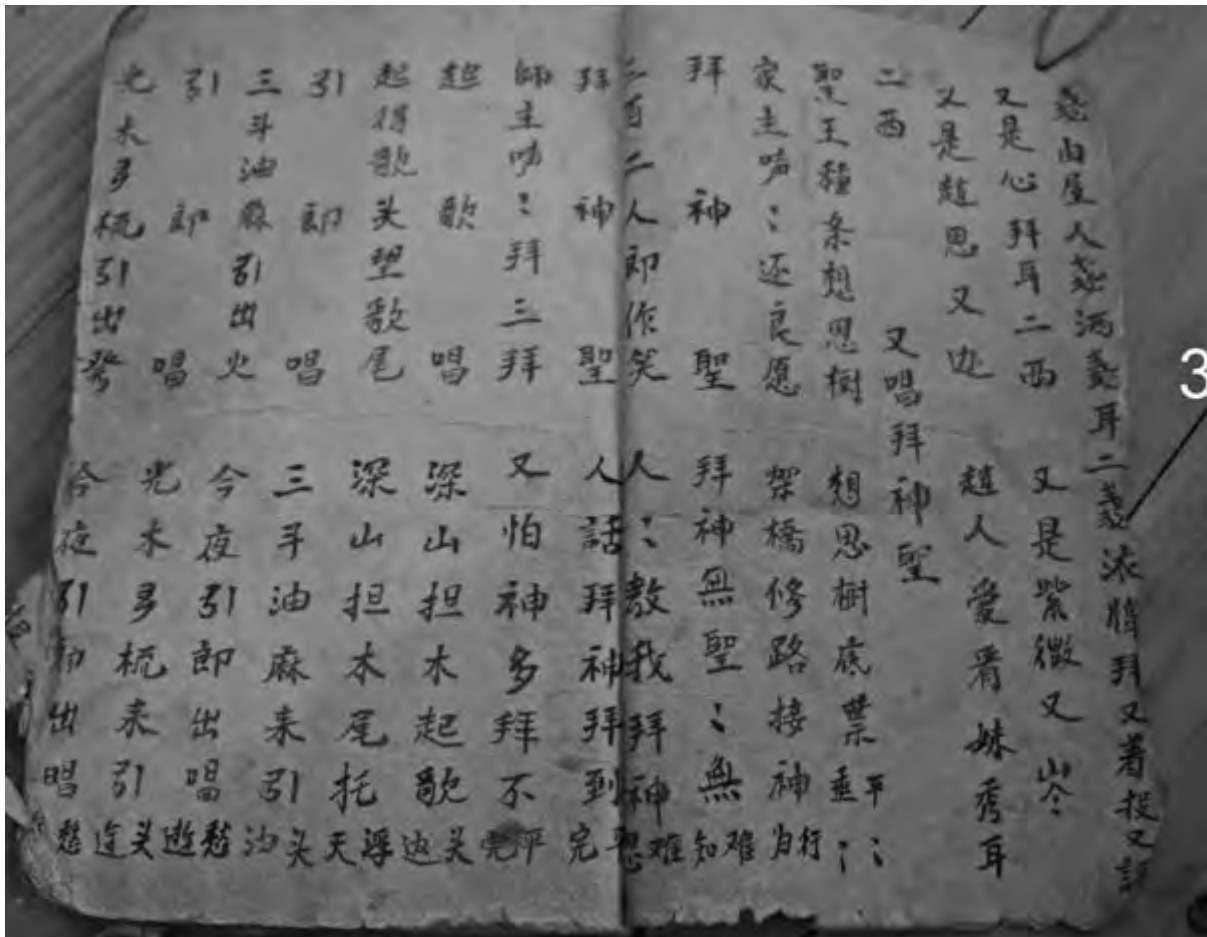 盏由屋人盏酒盏耳二盏添將拜又着投又許
又是心拜耳二西 又是紫微又岺
又是趙思又边 趙人愛着妹秀耳
二西 又唱拜神聖
聖王種条想思樹 想思樹底禁垂平⁚⁚
家主⁚还良愿 架橋修路接神行为
拜神聖 拜神無聖⁚無难知
二百二人郎作笑 人⁚教我拜神难恩
拜神聖 人話拜神拜到平完
師主⁚拜三拜 又怕神多拜不平完
起歌唱 深山担木起歌头边
起得歌头望歌尾 深山担木尾托浮天
引郎唱 三斗油麻来引头沟
三斗油麻引出火 今夜引郎出唱愁遊
引郎唱 光木多梳来引头连
光木多梳引出發 今夜引郎出唱愁
3